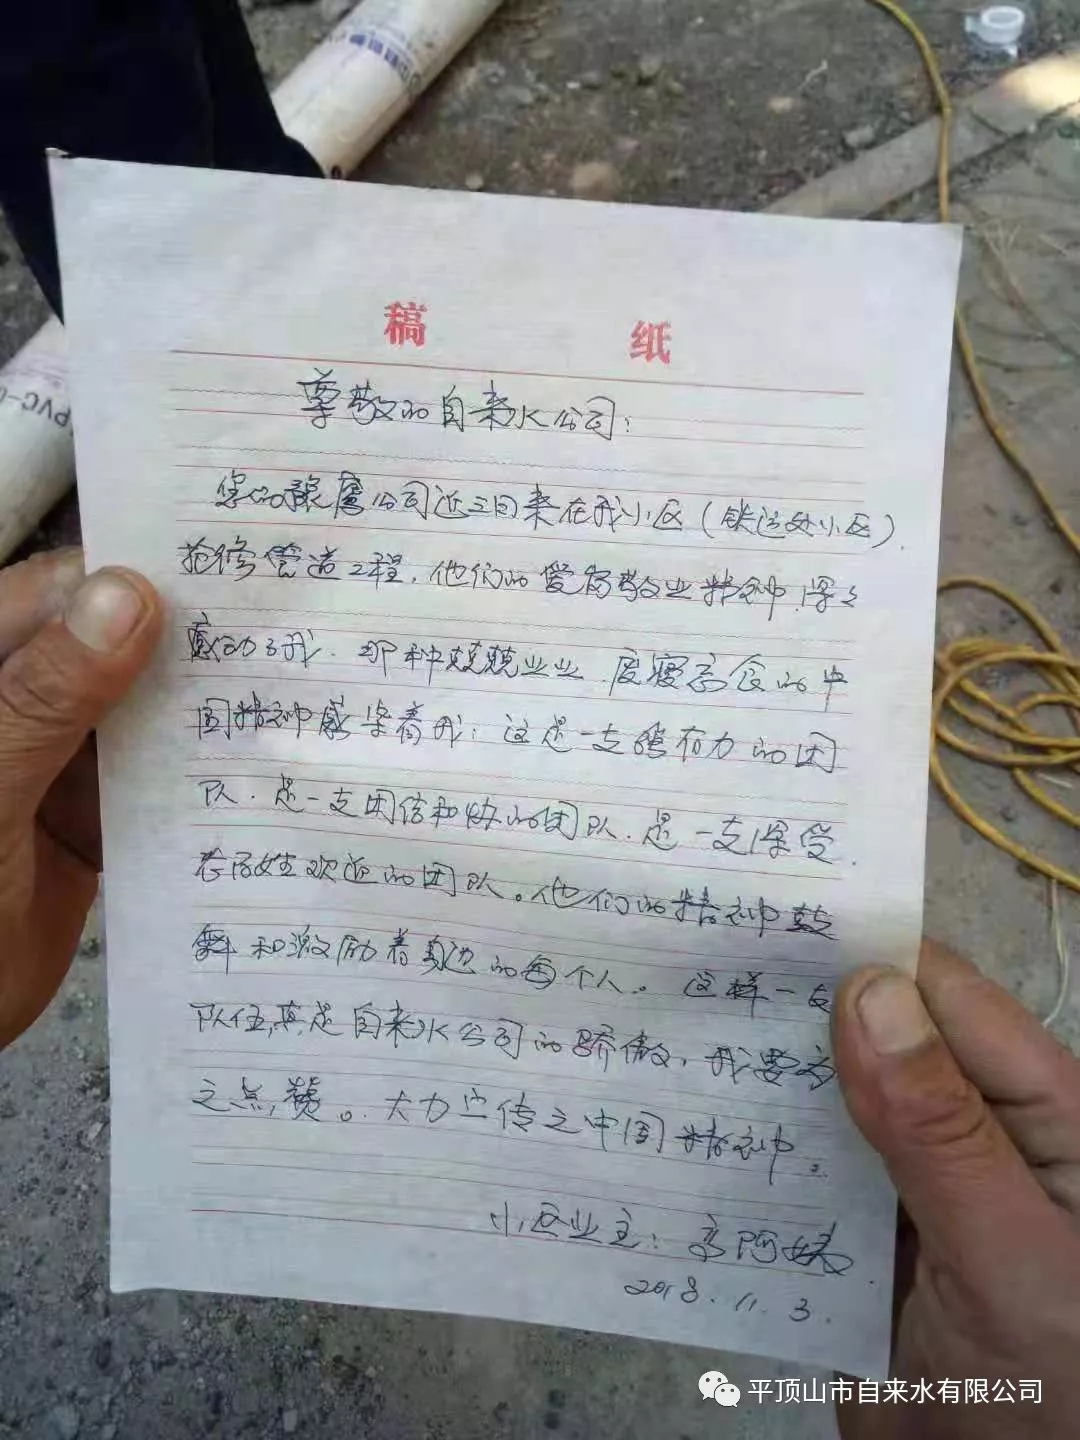 稿 纸
尊敬的自来水公司:
您的鹰公司近三日来在我小区(铁运处小区)
抢修管道工程,他们的爱岗敬业精神,深々
感动了我.那种兢兢业业.废寝忘食的中
国精神感染着我:这是一支强有力的团
队.是一支团结和协的团队.是一支深受
老百姓欢迎的团队。他们的精神鼓
舞和激励着身边的每个人。这样一支
队伍,真是自来水公司的骄傲,我要为
之点赞。大力宣传之中国精神。
小区业主:阿姨.
2018.11.3.
平顶山市自来水有限公司
PVC-U